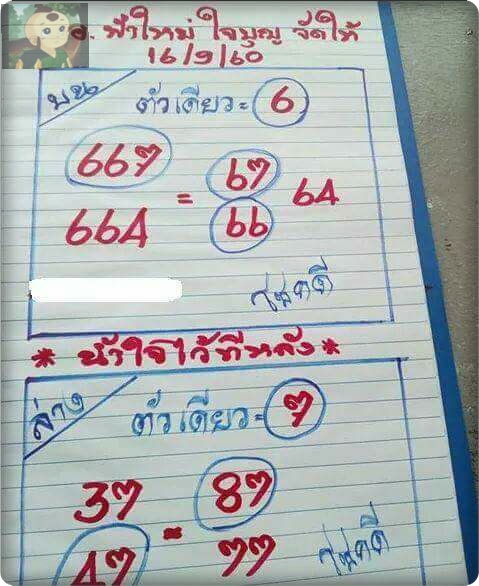 อ. ฟ้าใหม่ ใจบุญ จัดให้
16/9/60
บน ตัวเดียว = 6
667 = 67 64
664 66
โชคดี
* น้ำใจไว้ทีหลัง *
ล่าง ตัวเดียว = 7
37 = 87
47 77
โชคดี